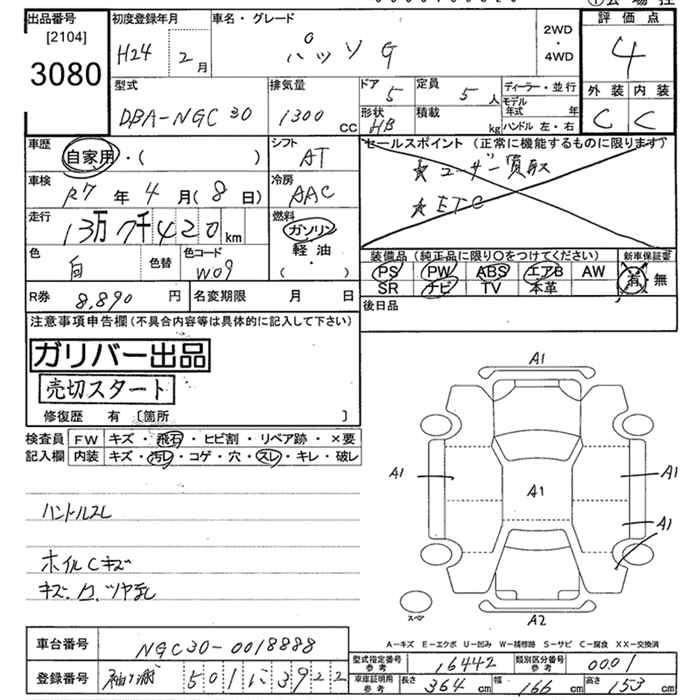 出品番号
[2104]
3080
初度登録年月
H24 2 月
車名・グレード
パッソ G
2WD
・
4WD
評価点
4
型式
DBA-NGC30
排気量
1300 CC
ドア
5
定員
5 人
形状
HB
積載
kg
ディーラー・並行
モデル年式 年
ハンドル 左・右
外装 内装
C C
車歴
自家用・( )
シフト
AT
セールスポイント(正常に機能するものに限ります)
★ユーザー買取
★ETC
車検
R7 年 4 月( 8 日)
冷房
AAC
走行
13万7千420 km
燃料
ガソリン
軽油
・
( )
色
白
色替
色コード
W09
装備品(純正品に限り○をつけてください)
PS PW ABS エアB AW
SR ナビ TV 本革
新車保証書
有 無
R券
8,890 円
名変期限 月 日
後日品
注意事項申告欄(不具合内容等は具体的に記入して下さい)
ガリバー出品
売切スタート
修復歴 有 〔箇所 〕
検査員
記入欄
FW キズ・飛石・ヒビ割・リペア跡・×要
内装 キズ・汚レ・コゲ・穴・スレ・キレ・破レ
ハンドルスレ
ホイルCキズ
A1
A1
A1
A1
A1
A2
スペア
A-キズ E-エクボ U-凹み W-補修跡 S-サビ C-腐食 XX-交換済
車台番号
NGC30-0018888
登録番号
501 に 3922
型式指定番号参考
16442
類別区分番号参考
0001
車庫証明用参考
長さ 364 cm 幅 166 cm 高さ 153 cm